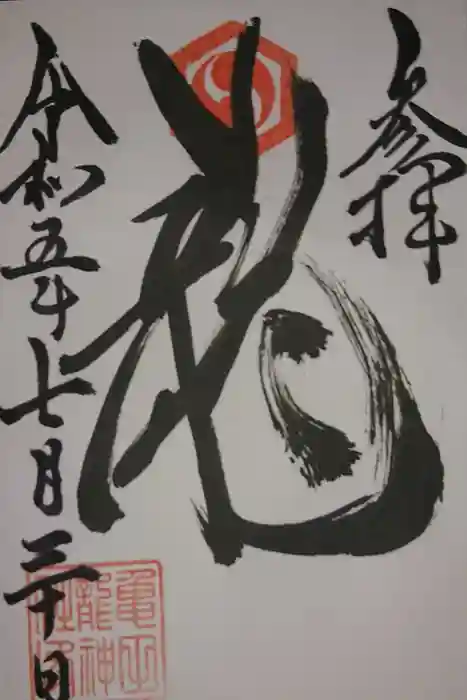 参拝
龍
令和五年七月三十日
龍神